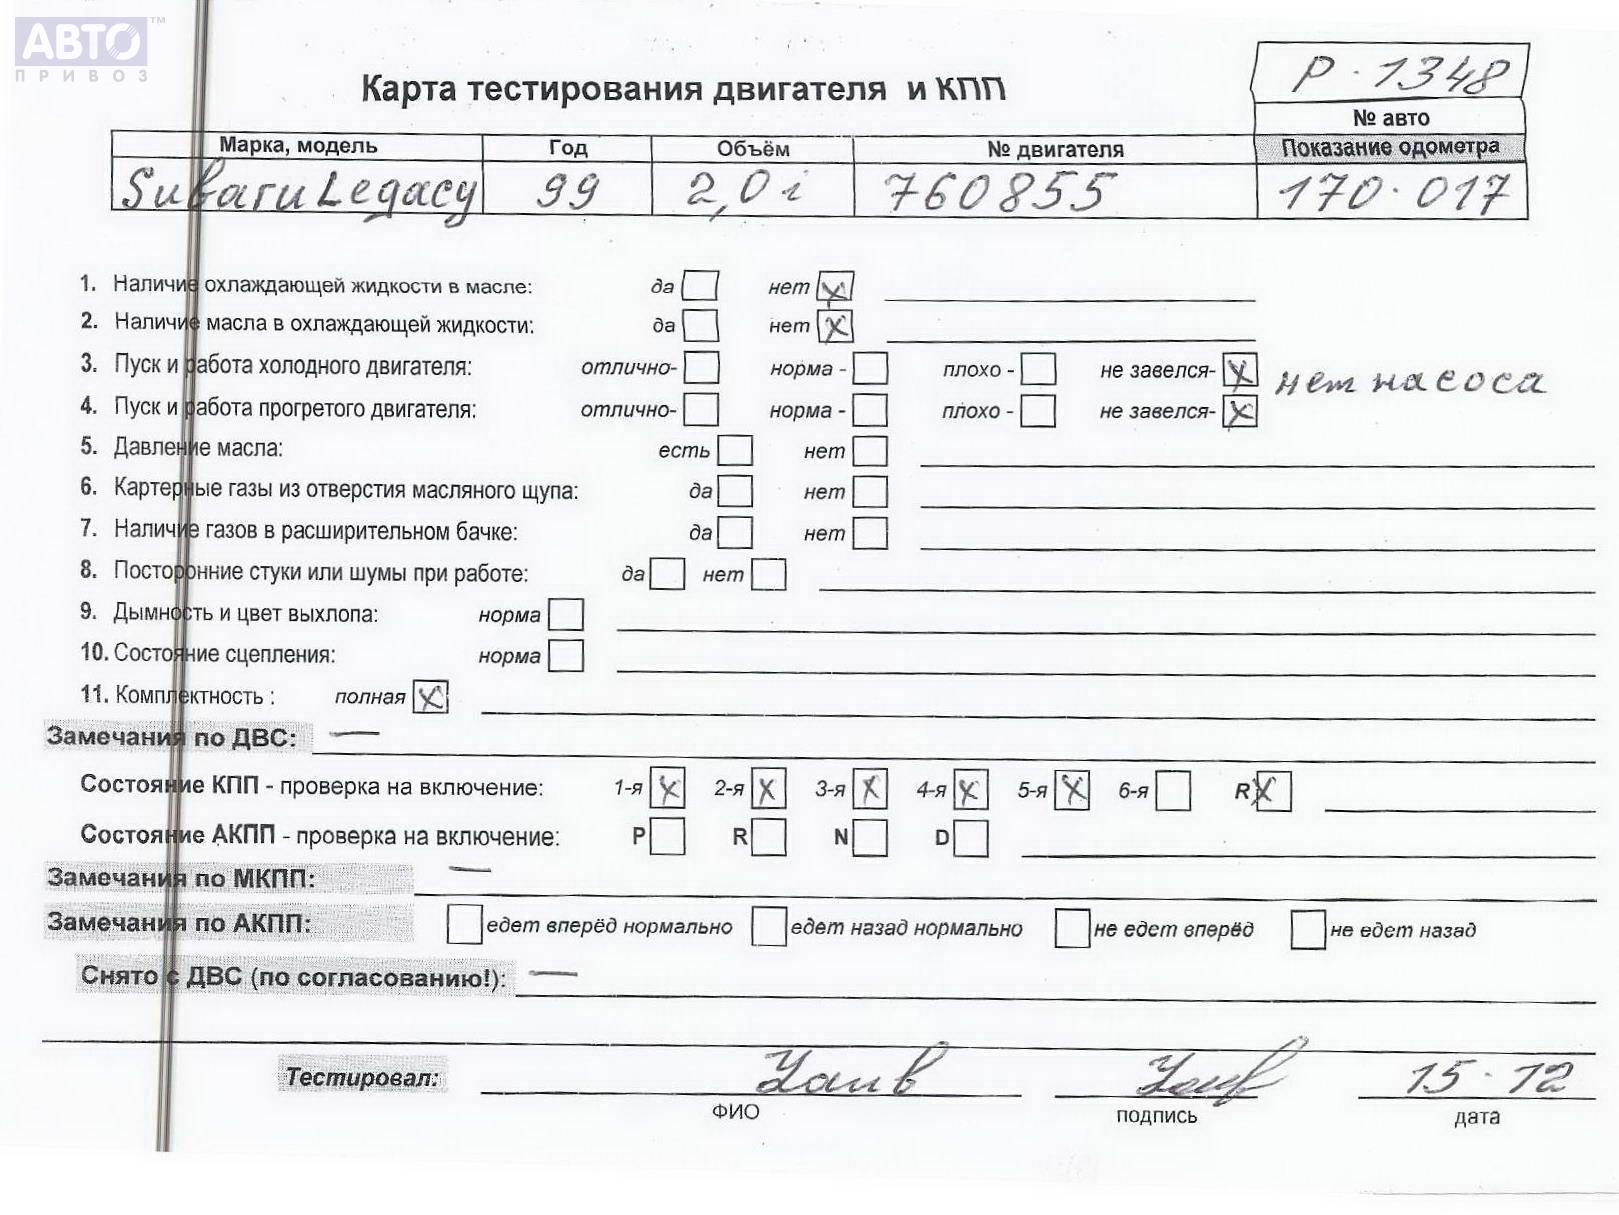 АВТО™
ПРИВОЗ
Карта тестирования двигателя и КПП
Р·1348
№ авто
Марка, модель Год Объём № двигателя Показание одометра
Subaru Legacy 99 2,0 i 760855 170·017
1. Наличие охлаждающей жидкости в масле: да нет X
2. Наличие масла в охлаждающей жидкости: да нет X
3. Пуск и работа холодного двигателя: отлично- норма - плохо - не завелся- X нет насоса
4. Пуск и работа прогретого двигателя: отлично- норма - плохо - не завелся- X
5. Давление масла: есть нет
6. Картерные газы из отверстия масляного щупа: да нет
7. Наличие газов в расширительном бачке: да нет
8. Посторонние стуки или шумы при работе: да нет
9. Дымность и цвет выхлопа: норма
10. Состояние сцепления: норма
11. Комплектность : полная X
Замечания по ДВС: —
Состояние КПП - проверка на включение: 1-я X 2-я X 3-я X 4-я X 5-я X 6-я R X
Состояние АКПП - проверка на включение: P R N D
Замечания по МКПП: —
Замечания по АКПП: едет вперёд нормально едет назад нормально не едет вперёд не едет назад
Снято с ДВС (по согласованию!): —
Тестировал: 15·12
ФИО подпись дата